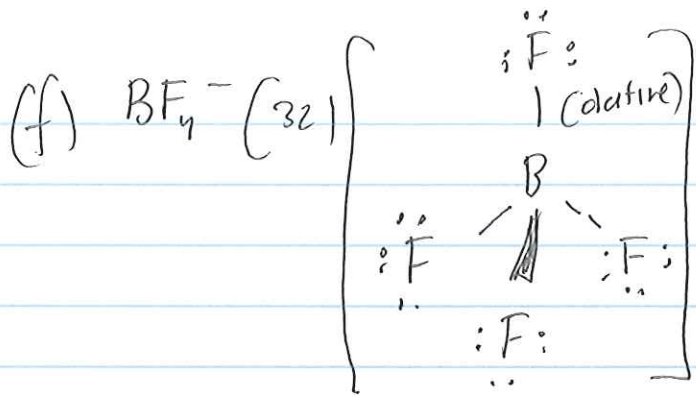 F
(f) BF₄⁻ (32) (dative)
B
F F
F